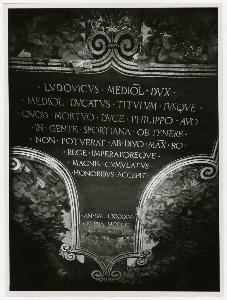 · LVDOVICVS · MEDIOL · DVX ·
MEDIOL · DVCATVS · TITVLVM · IVSQVE ·
QVOD · MORTVO · DVCE · PHILIPPO · AVO ·
· IN · GENTE · SFORTIANA · OBTINERE ·
· NON · POTVERAT · AB · DIVO · MAX · RO ·
· REGE · IMPERATOREQVE ·
· MAGNIS · CVMVLATVS ·
· HONORIBVS · ACCEPIT ·
· AN · SAL ·